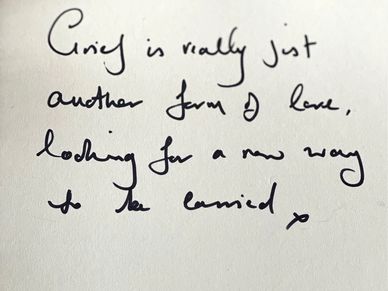 Grief is really just
another form of love,
looking for a new way
to be carried x